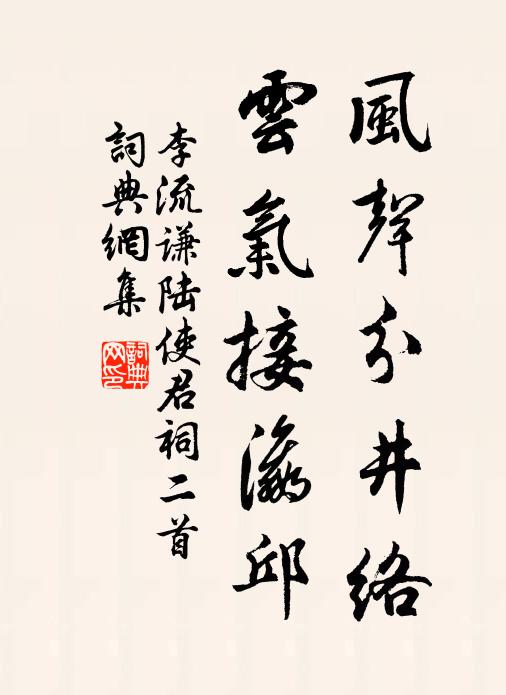 風聲分井絡
雲氣接瀛邱
李流謙陸使君祠二首
詞典網集
詞典網印